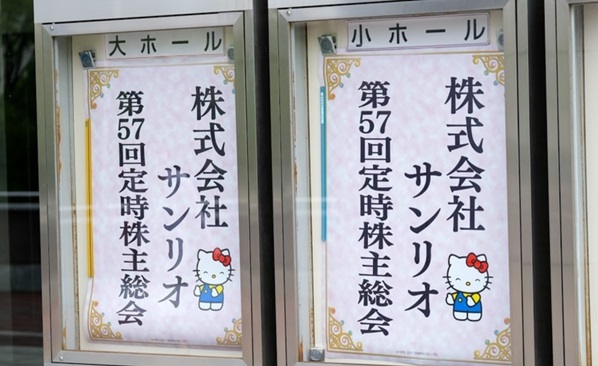 大ホール
株式会社
サンリオ
第57回定時株主総会
小ホール
株式会社
サンリオ
第57回定時株主総会